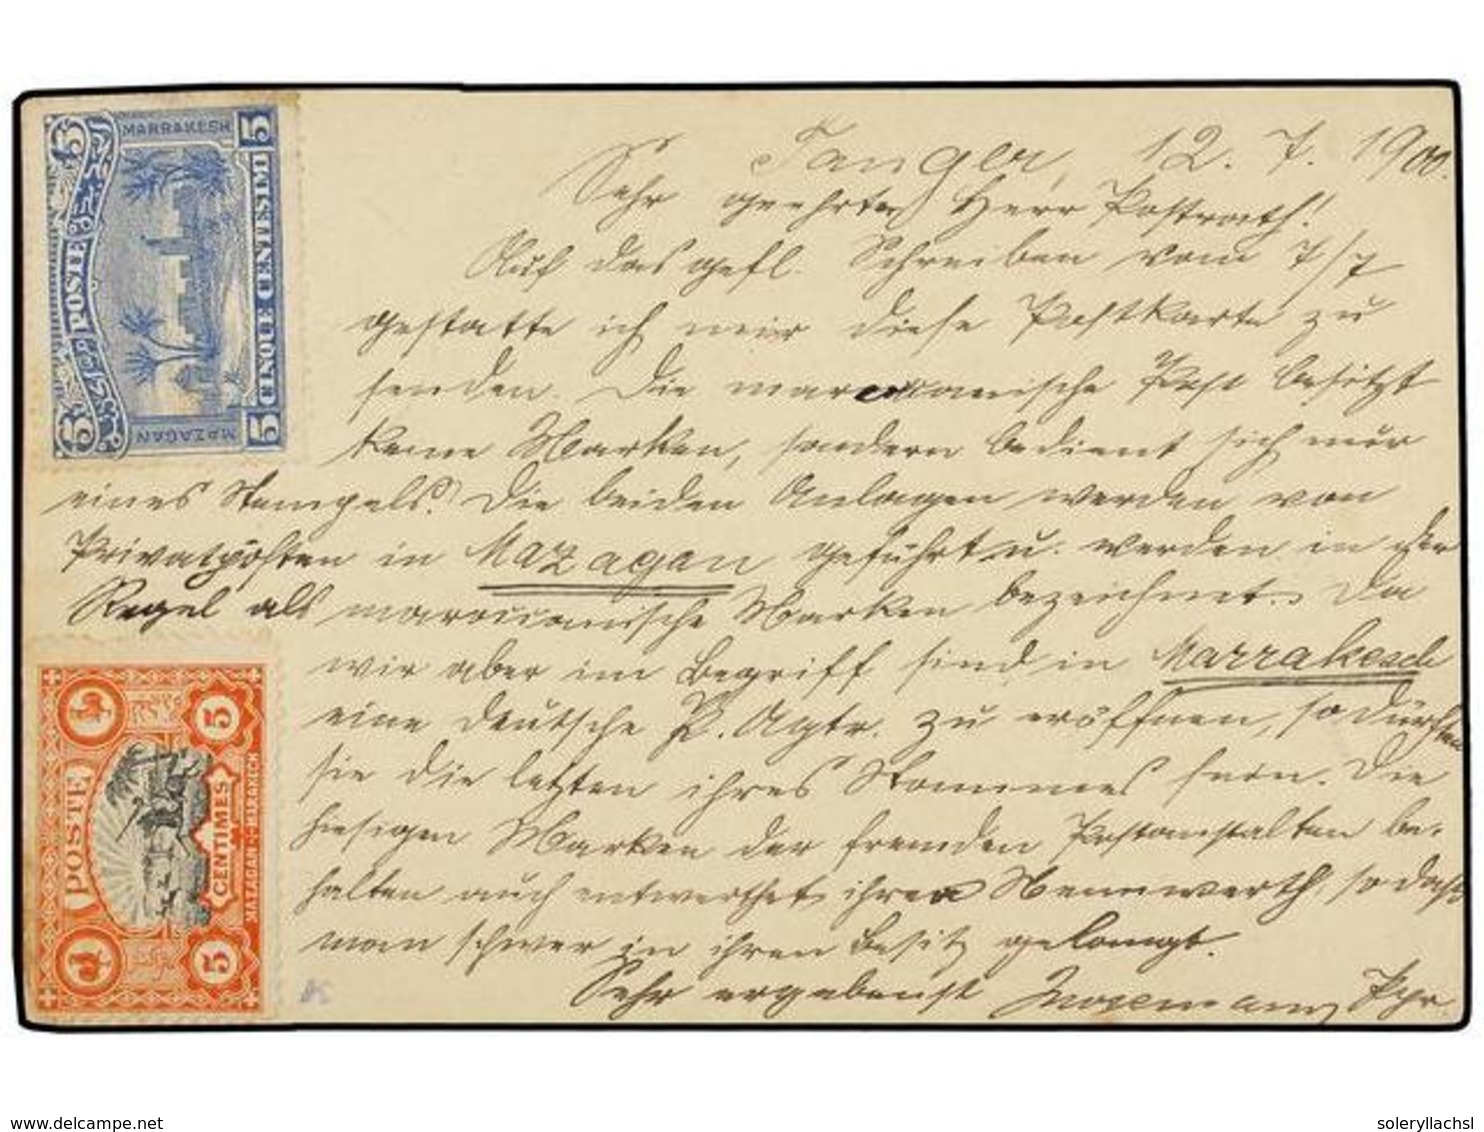 MARRAKESH
POSTE
CINQUE CENTESIMI
5 5
MAZAGAN
Tanger, 12. 7. 1900.
Sehr geehrter Herr Postrath!
Auf das gefl. Schreiben vom 7/7
gestatte ich mir diese Postkarte zu
senden. Die maroccanische Post besitzt
keine Marken, sondern bedient sich nur
eines Stempels. Die beiden Anlagen werden von
Privatposten in Mazagan geführt u. werden in der
Regel als maroccanische Marken bezeichnet. Da
wir aber im Begriff sind in Marrakesch
eine deutsche P. Agtr. zu eröffnen, so dürften
sie die letzten ihres Stammes sein. Die
hiesigen Marken der fremden Postanstalten be-
halten auch entwerthet ihren Nennwerth, so daß
man schwer in ihren Besitz gelangt.
Sehr ergebenst
POSTE
5 5
CENTIMES
MAZAGAN - MARAKECH
www.delcampe.net
soleryllachsl